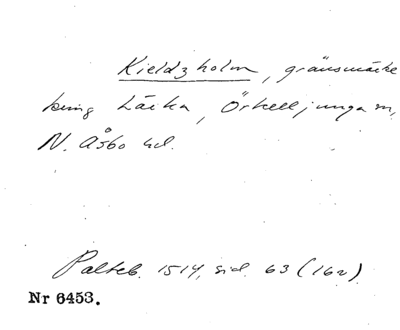 Kieldzholm, gränsmärke
kring Lärka, Örkelljunga sn,
N. Åsbo hd.
Palteb. 1514, sid. 63 (162).
Nr 6453.